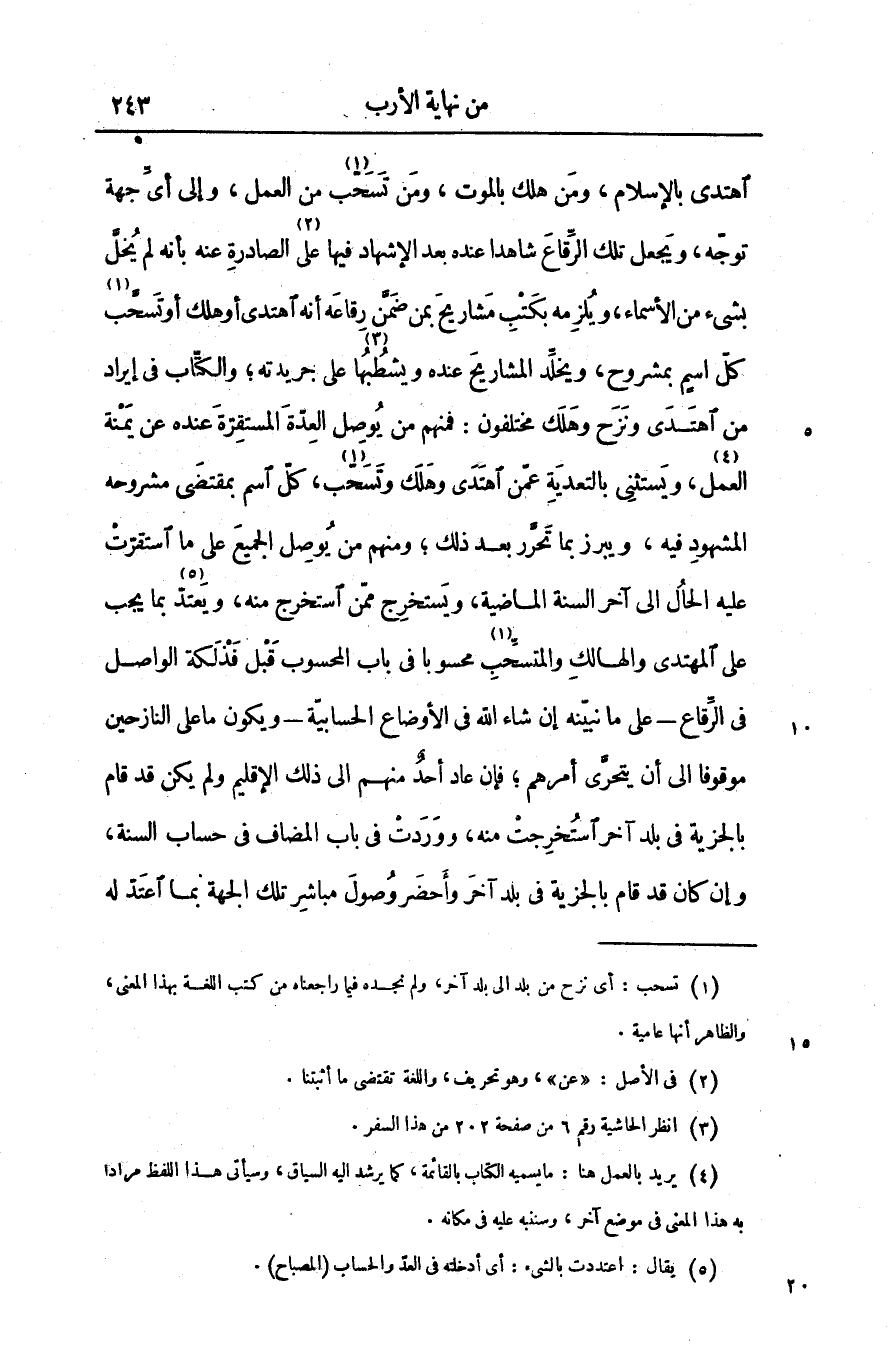 من نهاية الأرب ٢٤٣
ٱهتدى بالإسلام، ومَن هلك بالموت، ومَن تَسَحَّب (١) من العمل، وإلى أىّ جهة
توجّه، ويَجعل تلك الرِّقاعَ شاهدا عنده بعد الإشهاد فيها على (٢) الصادرةِ عنه بأنه لم يُخلَّ
بشىء من الأسماء، ويُلزمه بكَتْبِ مَشاريحَ بمن ضمَّن رِقاعَه أنه ٱهتدى أو هلك أو تَسحَّب (١)
كلّ اسم بمشروح، ويخلِّد المشاريحَ عنده ويشطُبُها (٣) على جريدته؛ والكتَّاب فى إيراد
من ٱهتَدَى ونَزَح وهَلَك مختلفون: فمنهم من يُوصِل العِدّةَ المستقِرّةَ عنده عن يَمْنة ٥
العمل (٤)، ويَستثنِى بالتعديَةِ عمّن ٱهتَدَى وهَلَك وتَسَحَّب (١)، كلّ ٱسم بمقتضَى مشروحه
المشهودِ فيه، ويبرز بما تَحَرَّر بعد ذلك؛ ومنهم من يُوصِل الجميعَ على ما ٱستقرّتْ
عليه الحالُ الى آخر السنة الماضية، ويَستخرِج ممّن ٱستخرج منه، ويَعتدّ (٥) بما يجب
على ٱلمهتدى والهالكِ والمتسحِّبِ (١) محسوبا فى باب المحسوب قَبْل فَذْلَكة الواصل
فى الرِّقاع — على ما نبيّنه إن شاء الله فى الأوضاع الحسابيّة — ويكون ما على النازحين ١٠
موقوفا الى أن يتحرَّى أمرهم؛ فإن عاد أحدٌ منهم الى ذلك الإقليم ولم يكن قد قام
بالجزية فى بلد آخر ٱستُخرِجتْ منه، ووَرَدتْ فى باب المضاف فى حساب السنة،
وإن كان قد قام بالجزية فى بلد آخرَ وأَحضَر وُصولَ مباشرِ تلك الجهة بما ٱعتَدّ له
(١) تسحب: أى نزح من بلد الى بلد آخر، ولم نجده فيما راجعناه من كتب اللغة بهذا المعنى،
والظاهر أنها عامية. ١٥
(٢) فى الأصل: «عن»، وهو تحريف، واللغة تقتضى ما أثبتنا.
(٣) انظر الحاشية رقم ٦ من صفحة ٢٠٢ من هذا السفر.
(٤) يريد بالعمل هنا: مايسميه الكتاب بالقائمة، كما يرشد اليه السياق، وسيأتى هذا اللفظ مرادا
به هذا المعنى فى موضع آخر، وسننبه عليه فى مكانه.
(٥) يقال: اعتددت بالشىء: أى أدخلته فى العدّ والحساب (المصباح). ٢٠